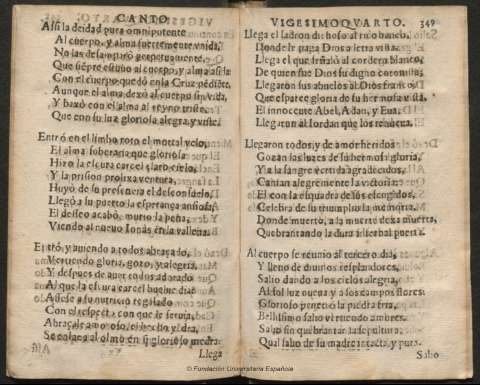 CANTO
Assi la deidad pura omnipotente
Al cuerpo, y alma fuertemente vnida,
No las desamparó perpetuamente,
Que siẽpre estuuo al cuerpo, y alma asida
Con el cuerpo quedó en la Cruz pẽdiẽte,
Aunque el alma dexó al cuerpo sin vida,
Y baxó con el alma al reyno triste,
Que con su luz gloriosa alegra, y viste.
Entró en el limbo roto el mortal velo,
El alma soberana que gloriosa
Hizo la escura carcel claro cielo,
Y la prision prolixa ventura
Huyó de su presencia el desconsuelo,
Llegó a su puerto la esperança ansiosa,
El desseo acabó, murio la pena,
Viendo al nueuo Ionás en la vallena.
Entró, y auiendo a todos abraçado,
Vertiendo gloria, gozo, y alegria,
Y despues de auer todos adorado
Al que la escura carcel buelue dia
su nutricio regalado
Con el respecto con que le seruia,
Abraçale amoroso, el bello yedra,
al olmo en si glorioso medra
Llega
VIGESIMOQVARTO. 349
Llega el ladron dichoso al rico banco,
Donde le paga Dios a letra vista
Llega el que señaló al cordero blanco,
De quien fue Dios su digno coronista,
Llegaron sus abuelos al Dios franco
Que esparce gloria de su hermosa vista,
El innocente Abel, Adan, y Eua,
Llegaron al Iordan que los renueua.
Llegaron todos, y de amor heridos
Gozan las luzes de su hermosa gloria,
Y a la sangre vertida agradecidos,
Cantan alegremente la victoria
El con la esquadra de los escogidos,
Celebra de su triumpho la memoria,
Donde muerto, a la muerte dexa muerta,
Quebrantando la dura infernal puerta.
Al cuerpo se reunio al tercero dia,
Y lleno de diuinos resplandores,
Salio dando a los cielos alegria,
Al sol luz nueua y a los campos flores:
Glorioso penetró la piedra fria,
Bellissimo salio vertiendo amores
Salio sin quebrantar la sepultura,
Qual salio de su madre intacta, y pura.
Salio
© Fundación Universitaria Española